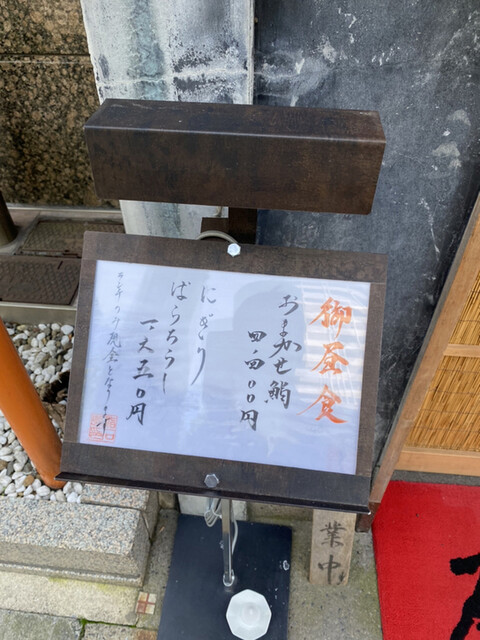 御昼食
おまかせ鮨
四四〇〇円
にぎり
ばらちらし
一六五〇円
のみ現金となります
業中